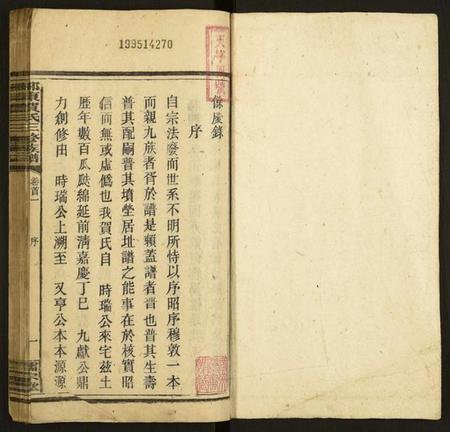 199514270
餘慶錄
序
自宗法廢而世系不明所恃以序昭序穆敦一本
而親九族者胥於譜是賴蓋譜者普也普其生壽
普其配嗣普其墳塋居址譜之能事在於核實昭
信而無或虛僞也我賀氏自 時瑞公來宅兹土
歷年數百瓜瓞綿延前淸嘉慶丁巳 九獻公鼎
力創修由 時瑞公上溯至 友亨公本本源源
賀氏三修族譜
卷首一
序
一